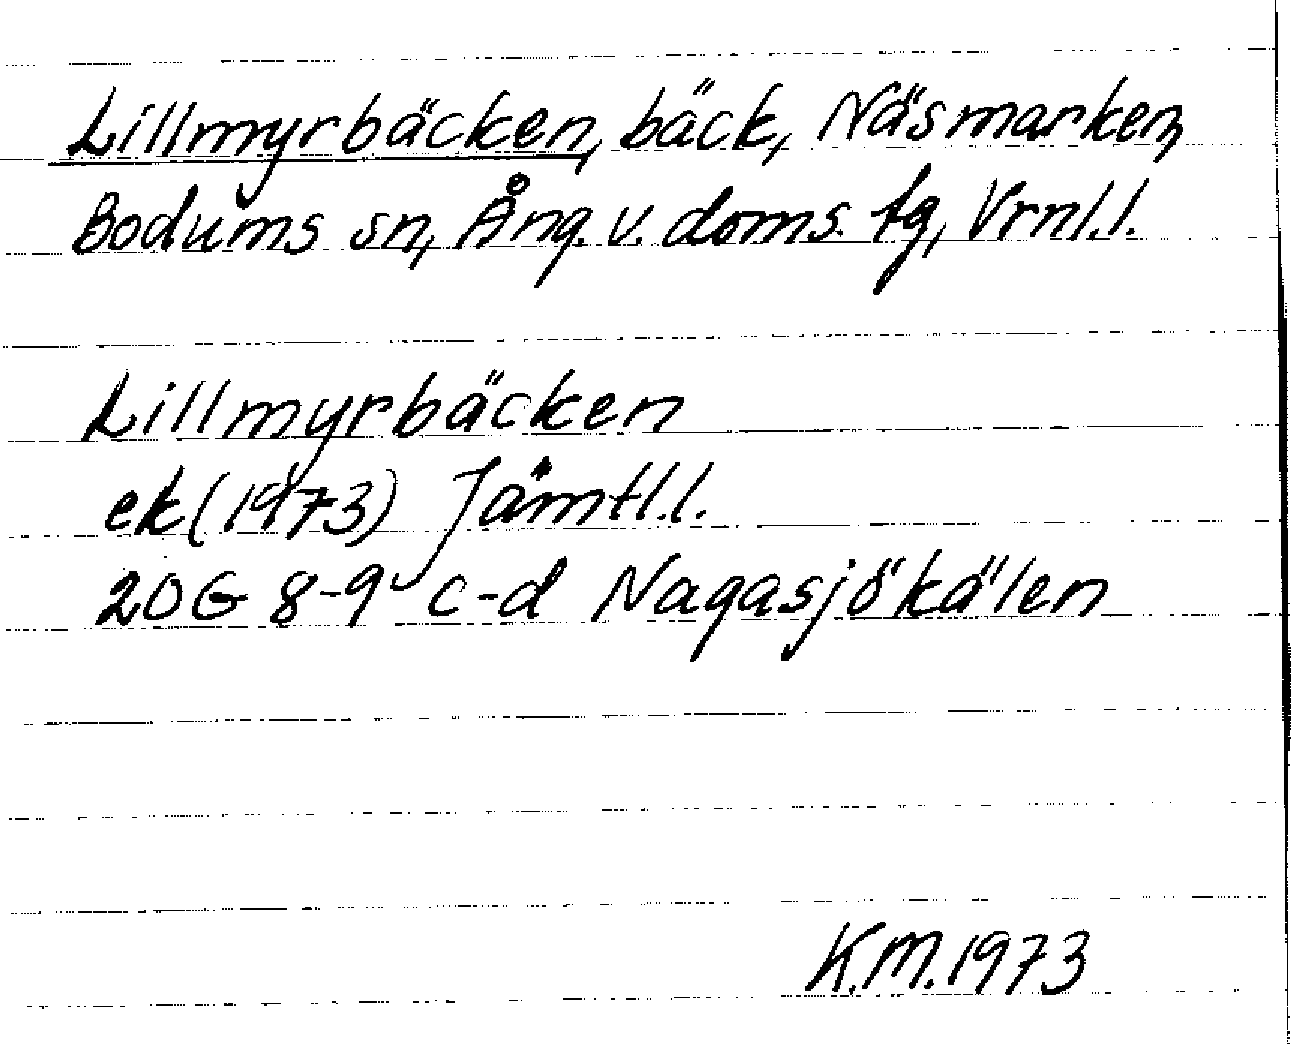 Lillmyrbäcken, bäck, Näsmarken,
Bodums sn, Ång. v. doms. tg, Vrnl.l.
Lillmyrbäcken
ek (1973) Jämtl.l.
20G 8-9 c-d Nagasjökälen
K.M. 1973